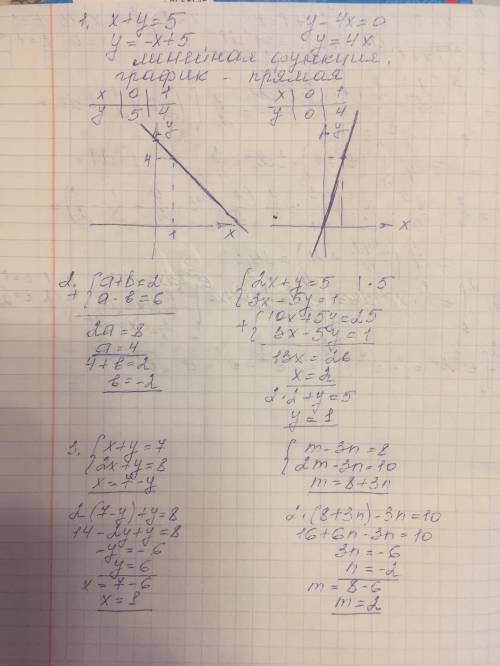 1. x+y=5
y=-x+5
y-4x=0
y=4x
линейная функция.
график - прямая
x | 0 | 1
y | 5 | 4
x | 0 | 1
y | 0 | 4
y
4
1
x
y
x
2. + { a+в=2
a-в=6
2a=8
a=4
4+в=2
в=-2
{ 2x+y=5 | ·5
3x-5y=1
+ { 10x+5y=25
3x-5y=1
13x=26
x=2
2·2+y=5
y=1
3. { x+y=7
2x+y=8
x=7-y
2(7-y)+y=8
14-2y+y=8
-y=-6
y=6
x=7-6
x=1
{ m-3n=8
2m-3n=10
m=8+3n
2·(8+3n)-3n=10
16+6n-3n=10
3n=-6
n=-2
m=8-6
m=2